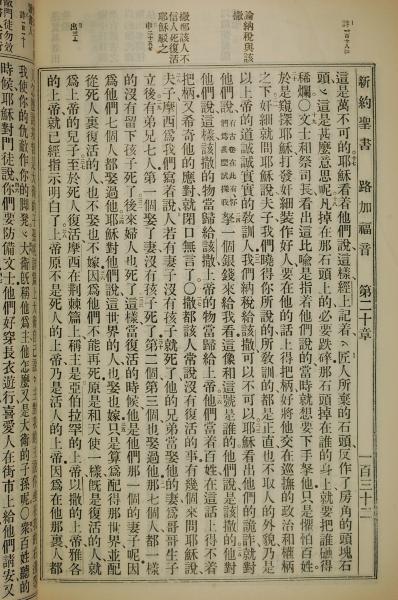 新約聖書 路加福音 第二十章 百三十二
這是萬不可的耶穌看着他們說這樣經上記着、匠人所棄的石頭反作了房角的頭塊石
頭、這是甚麼意思呢凡掉在那石頭上的必要跌碎那石頭掉在誰的身上就要把誰砸得
稀爛○文士和祭司長看出這比喻是指着他們說的當時就想要下手拏他只是懼怕百姓
於是窺探耶穌打發奸細裝作好人要在他的話上得把柄好將他交在巡撫的政治和權柄
之下奸細就問耶穌說夫子我們曉得你所說的所敎訓的都是正直也不取人的外貌乃是
以上帝的道誠誠實實的敎訓人我們納稅給該撒可以不可以耶穌看出他們的詭詐就對
他們說有古卷在此有你們爲甚麼試探我拏一個銀錢來給我看這像和這號是誰的他們說是該撒的他對
他們說這樣該撒的物當歸給該撒上帝的物當歸給上帝他們當着百姓在這話上得不着
把柄又希奇他的應對就閉口無言了○撒都該人常說沒有復活的事有幾個來問耶穌說
夫子摩西爲我們寫着說人若有妻子沒有孩子就死了他的兄弟當娶他的妻爲哥哥生子
立後有弟兄七人第一個娶了妻沒有孩子死了第二個第三個也娶過他那七個人都一樣
的沒有留下孩子死了後來婦人也死了這樣當復活的時候他是他們那一個的妻子呢因
爲他們七個人都娶過他耶穌對他們說這世界的人也娶也嫁只是算爲配得那世界並配
從死人裏復活的人也不娶也不嫁因爲他們不能再死原是和天使一樣旣是復活的人就
爲上帝的兒子至於死人復活摩西在荊棘篇上稱主是亞伯拉罕的上帝以撒的上帝雅各
的上帝就已經指示明白了上帝原不是死人的上帝乃是活人的上帝因爲在他那裏人都
論納稅與該
撒
撒都該人不
信人死復活
耶穌駁之
我使你的仇敵作你的腳凳、大衞旣稱他爲主他怎麼又是大衞的子孫呢○衆百姓聽的
時候耶穌對門徒說你們要防備文士他們好穿長衣遊行喜愛人在街市上給他們請安又